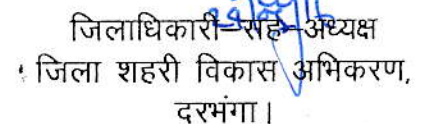 जिलाधिकारी–सह–अध्यक्ष
जिला शहरी विकास अभिकरण,
दरभंगा।